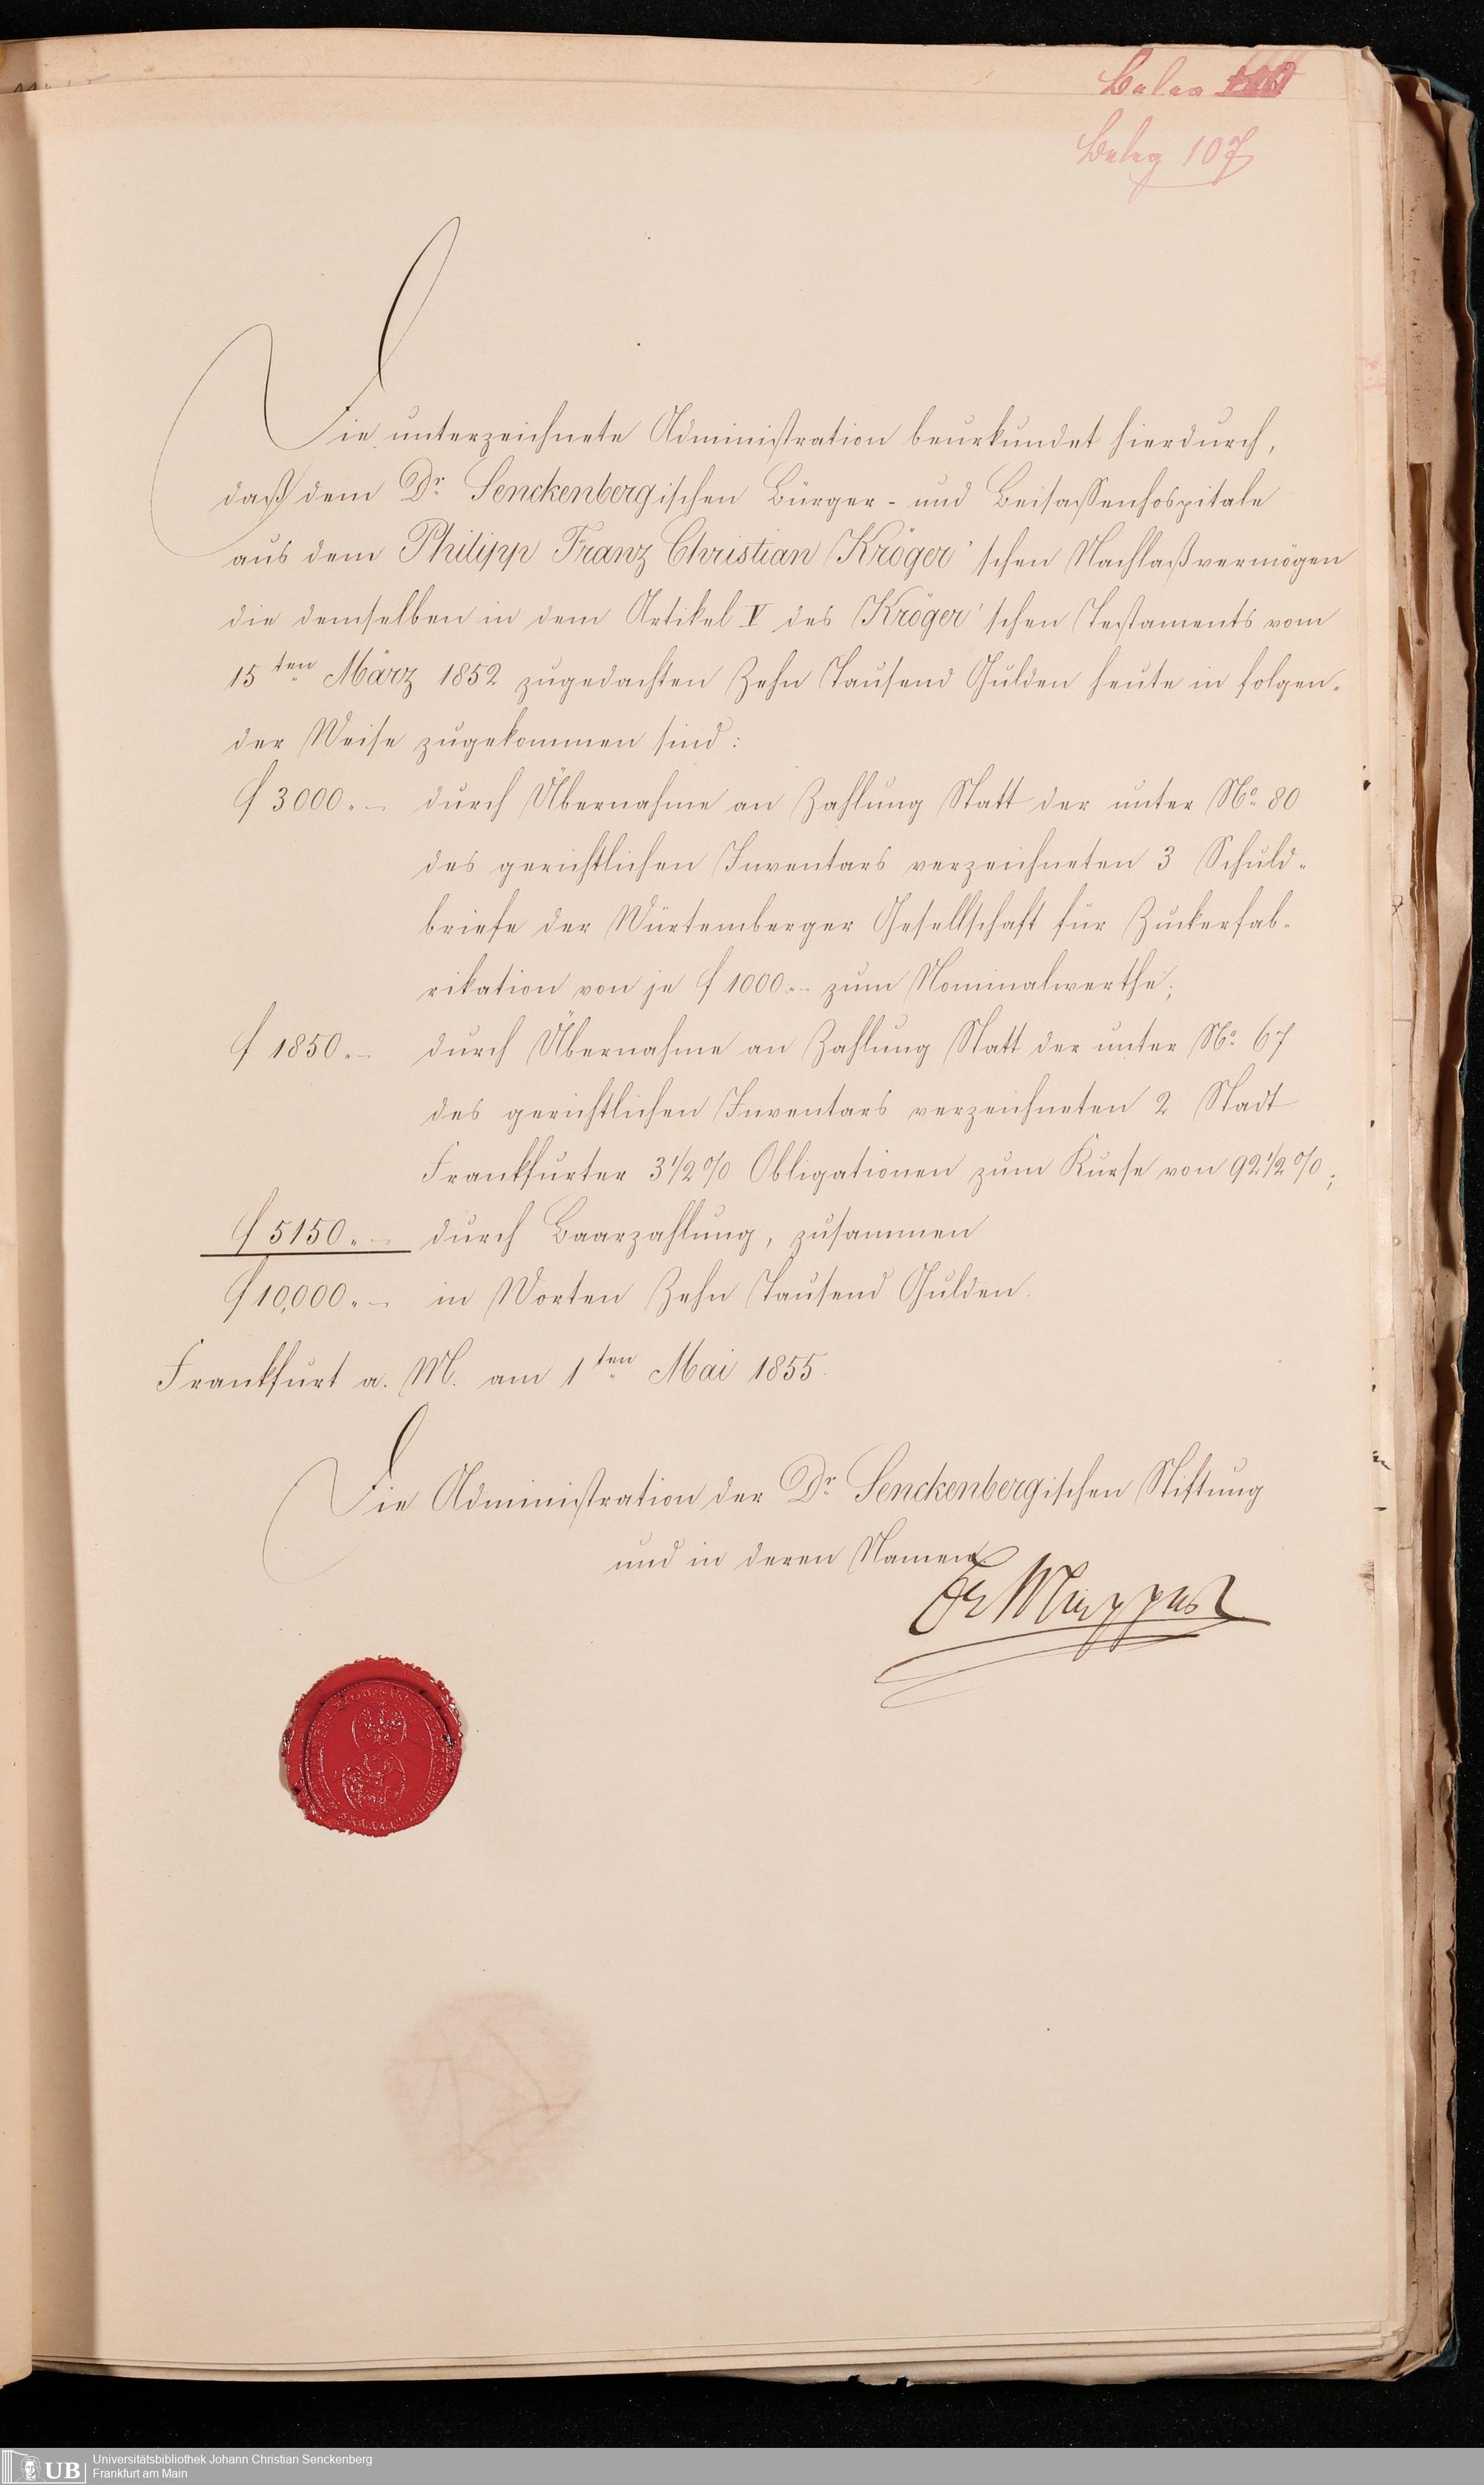 Beleg
Beleg 107
Die unterzeichnete Administration beurkundet hierdurch,
daß dem Dr. Senckenbergischen Bürger- und Beisassenhospitale
aus dem Philipp Franz Christian Kröger'schen Nachlaßvermögen
die demselben in dem Artikel V des Kröger'schen Testaments vom
15ten März 1852 zugedachten Zehn Tausend Gulden heute in folgen-
der Weise zugekommen sind:
f 3000.- durch Übernahme an Zahlung Statt der unter No. 80
des gerichtlichen Inventars verzeichneten 3 Schuld-
briefe der Würtemberger Gesellschaft für Zuckerfab-
rikation von je f 1000.- zum Nominalwerthe;
f 1850.- durch Übernahme an Zahlung Statt der unter No. 67
des gerichtlichen Inventars verzeichneten 2 Stadt
Frankfurter 3 1/2 % Obligationen zum Kurse von 92 1/2 %;
f 5150.- durch Baarzahlung, zusammen
f 10,000.- in Worten Zehn Tausend Gulden.
Frankfurt a. M. am 1ten Mai 1855.
Die Administration der Dr. Senckenbergischen Stiftung
und in deren Namen
UB
Universitätsbibliothek Johann Christian Senckenberg
Frankfurt am Main